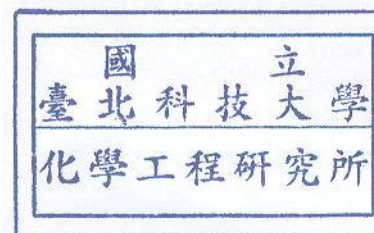 國立
臺北科技大學
化學工程研究所